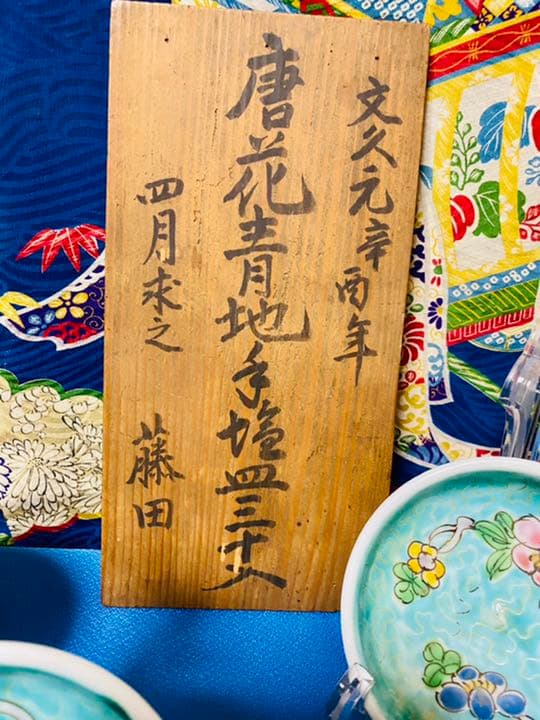 文久元辛酉年
唐花青地手塩皿三十人
四月求之
藤田